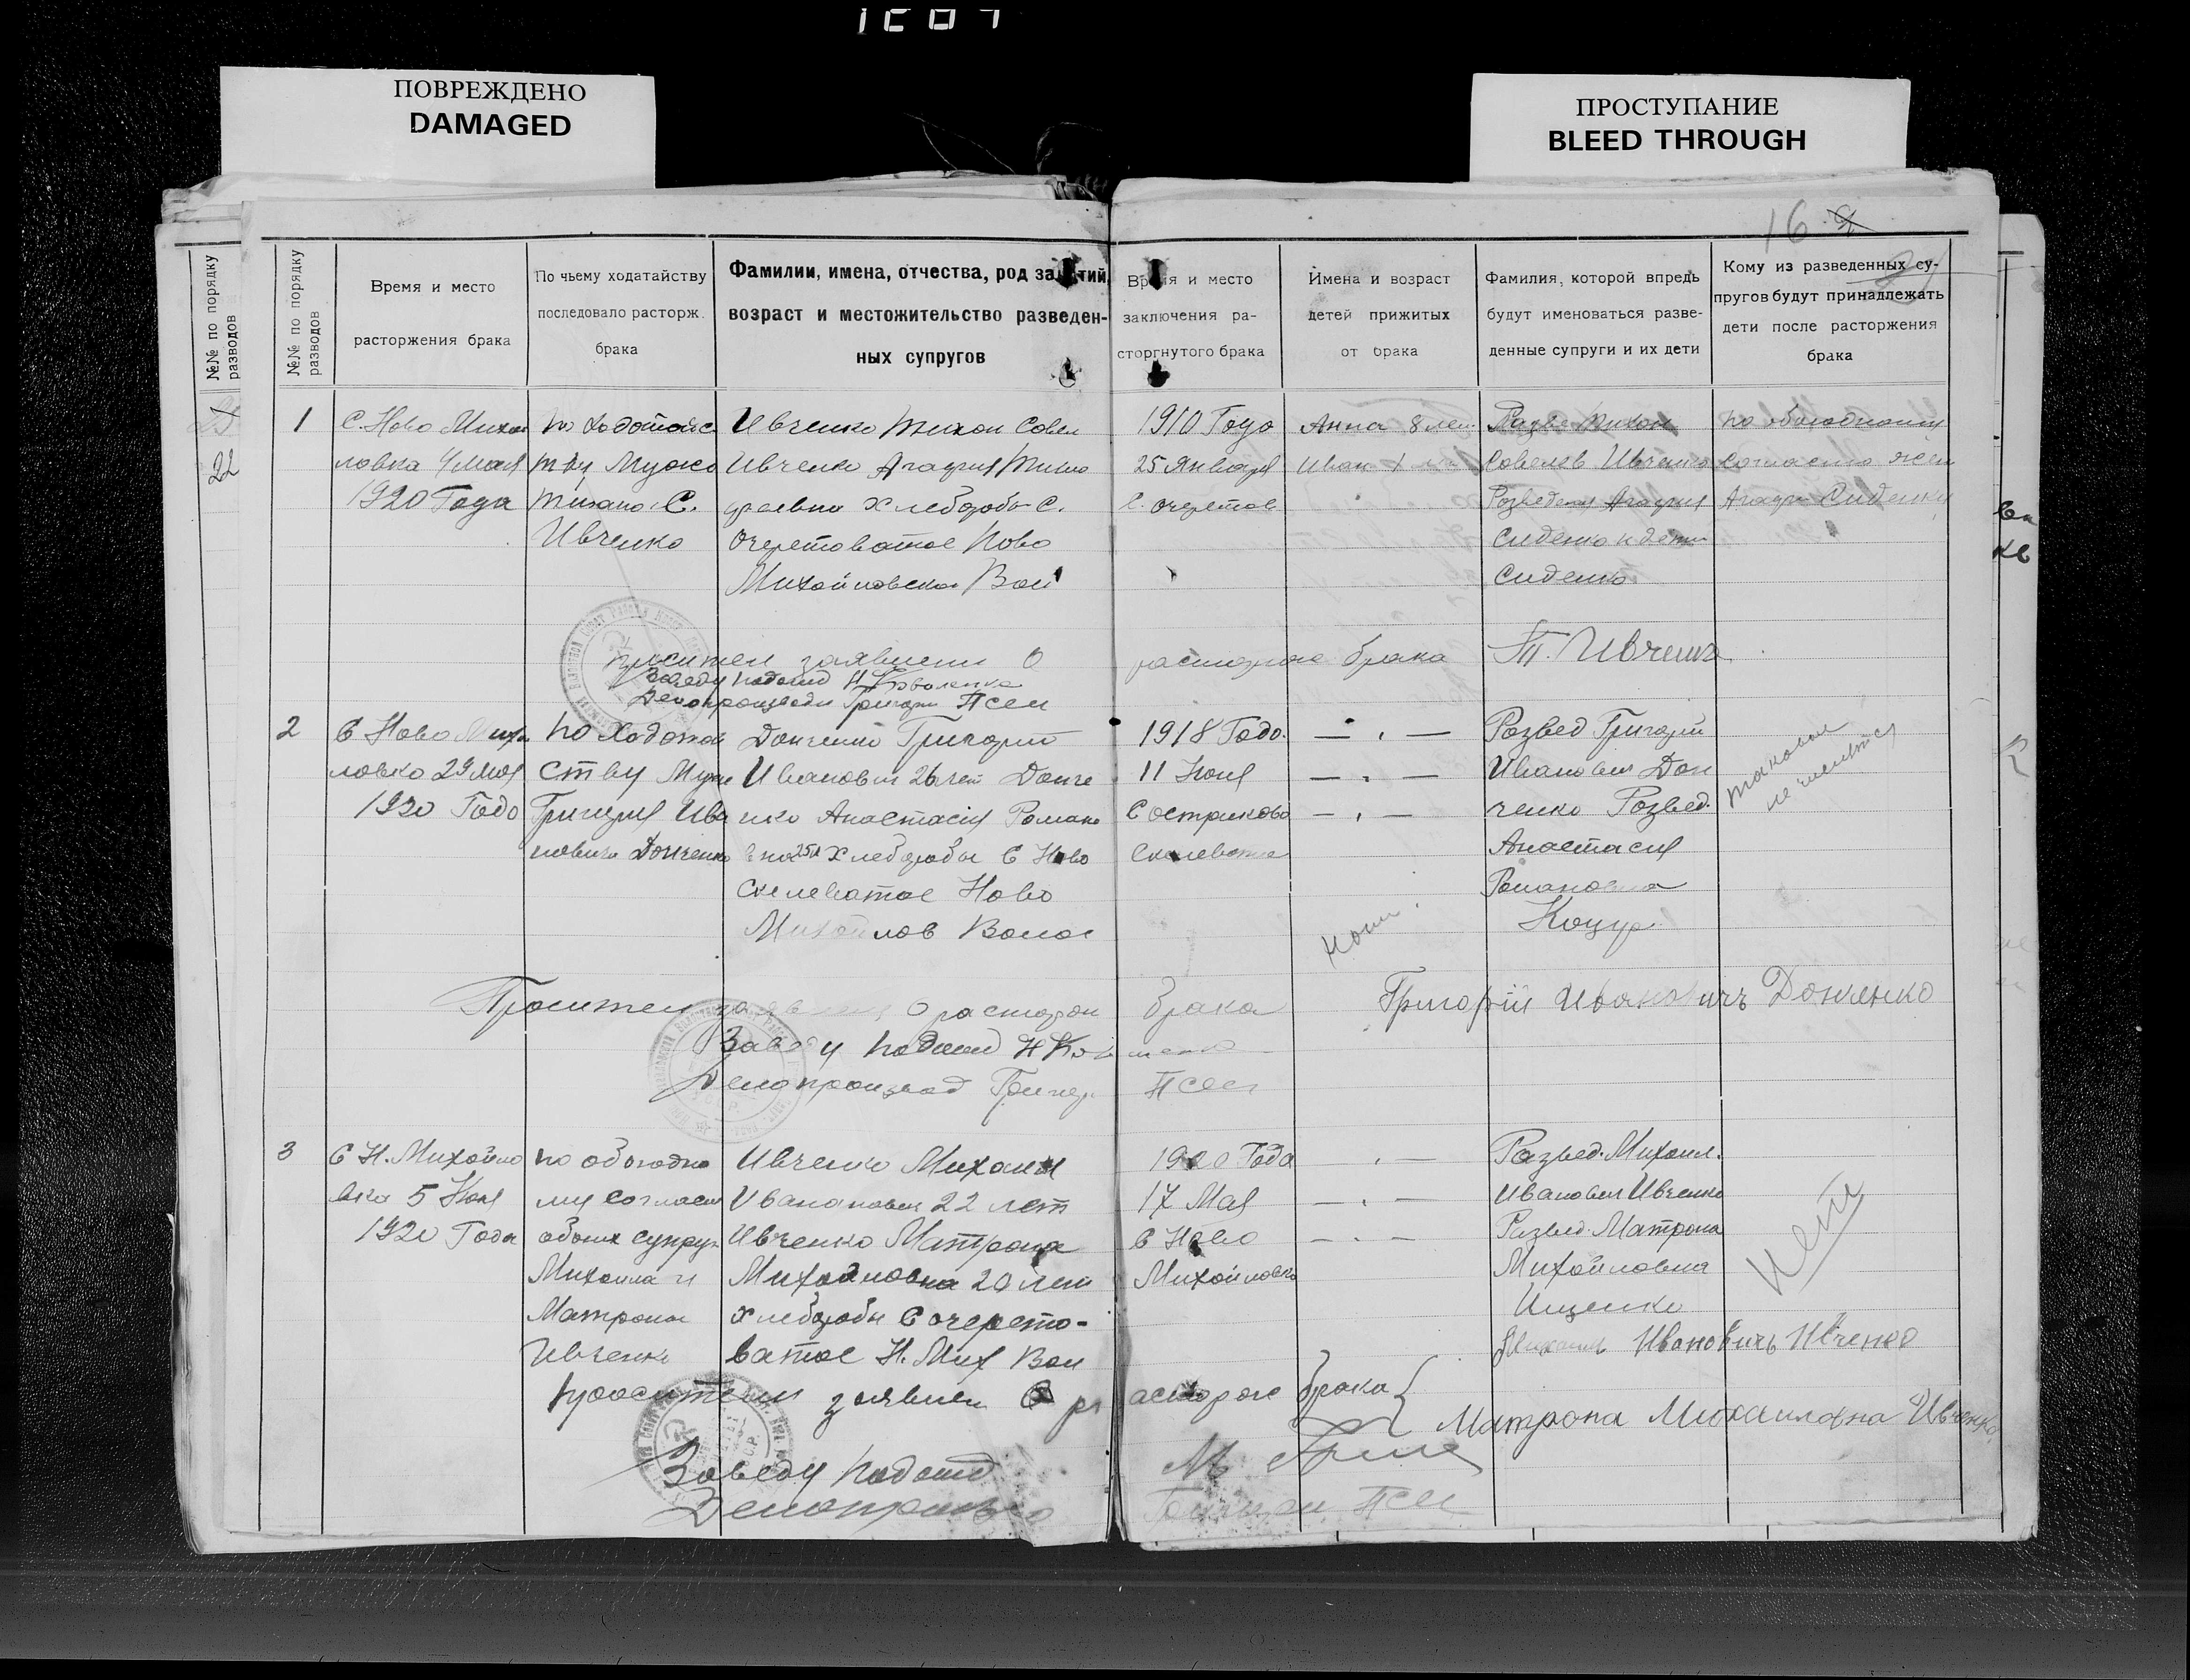 ПОВРЕЖДЕНО
DAMAGED
ПРОСТУПАНИЕ
BLEED THROUGH
16
№№ по порядку
разводов
22
№№ по порядку
разводов
Время и место
расторжения брака
По чьему ходатайству
последовало расторж.
брака
Фамилии, имена, отчества, род занятий,
возраст и местожительство разведен-
ных супругов
Время и место
заключения ра-
сторгнутого брака
Имена и возраст
детей прижитых
от брака
Фамилия, которой впредь
будут именоваться разве-
денные супруги и их дети
Кому из разведенных су-
пругов будут принадлежать
дети после расторжения
брака
1
С. Ново Михай
ловка 4 мая
1920 Года
по ходотайс
тву Мужа
Тихона С.
Ивченко
Ивченко Тихон Савел
Ивченко Агафия Тимо
феевна Хлеборобы С.
Очеретоватое Ново
Михайловской Вол
1910 Года
25 Января
С. Очеретов
Анна 8 лет
Иван 1
Развед Тихон
Савелев Ивченко
Розведеная Агафия
Сиденко и дети
Сиденко
по обоюдному
Согласию жен
Агафи Сиденку
проситель заявлени О
расторже брака
Т. Ивченко
Заведу подотд Н Коваленко
Делопроизводи Григори Псел
2
С Ново Миха
ловка 29 мая
1920 Годо
по Ходотай
ству Мужа
Григория Ива
новича Донченко
Донченко Григорий
Иванович 26 лет Донче
нко Анастасия Романо
вна 25 л Хлеборобы С Ново
Скелеватое Ново
Михайлов Волос
1918 Годо.
11 Июня
С Остриково
Скелеватое
Развед Григорий
Иванович Дон
ченко Розвед.
Анастасия
Романовна
Коцур
таковые
не имеются
Проситель заявлени О расторж
брака
Григорій Ивановичъ Донченко
Заведу подотд Н Коваленко
Делопроизвод Григор
Псел
3
С Н. Михайло
вка 5 Июня
1920 Года
по обоюдно
му согласи
обоих супруг
Михаила и
Матроны
Ивченко
Ивченко Михаил
Иванович 22 лет
Ивченко Матрона
Михайловна 20 лет
Хлеборобы С очерето-
ватое Н. Мих Вол
1920 Года
17 Мая
С Ново
Михойловка
Развед. Михаил.
Иванович Ивченко
Развед. Матрона
Михойловна
Ищенко
нетъ
Михаилъ Ивановичъ Ивченко
просители заявлен О расторже брака
Матрона Михаиловна Ивченко
Заведу подотд
Делопроизво
Псел